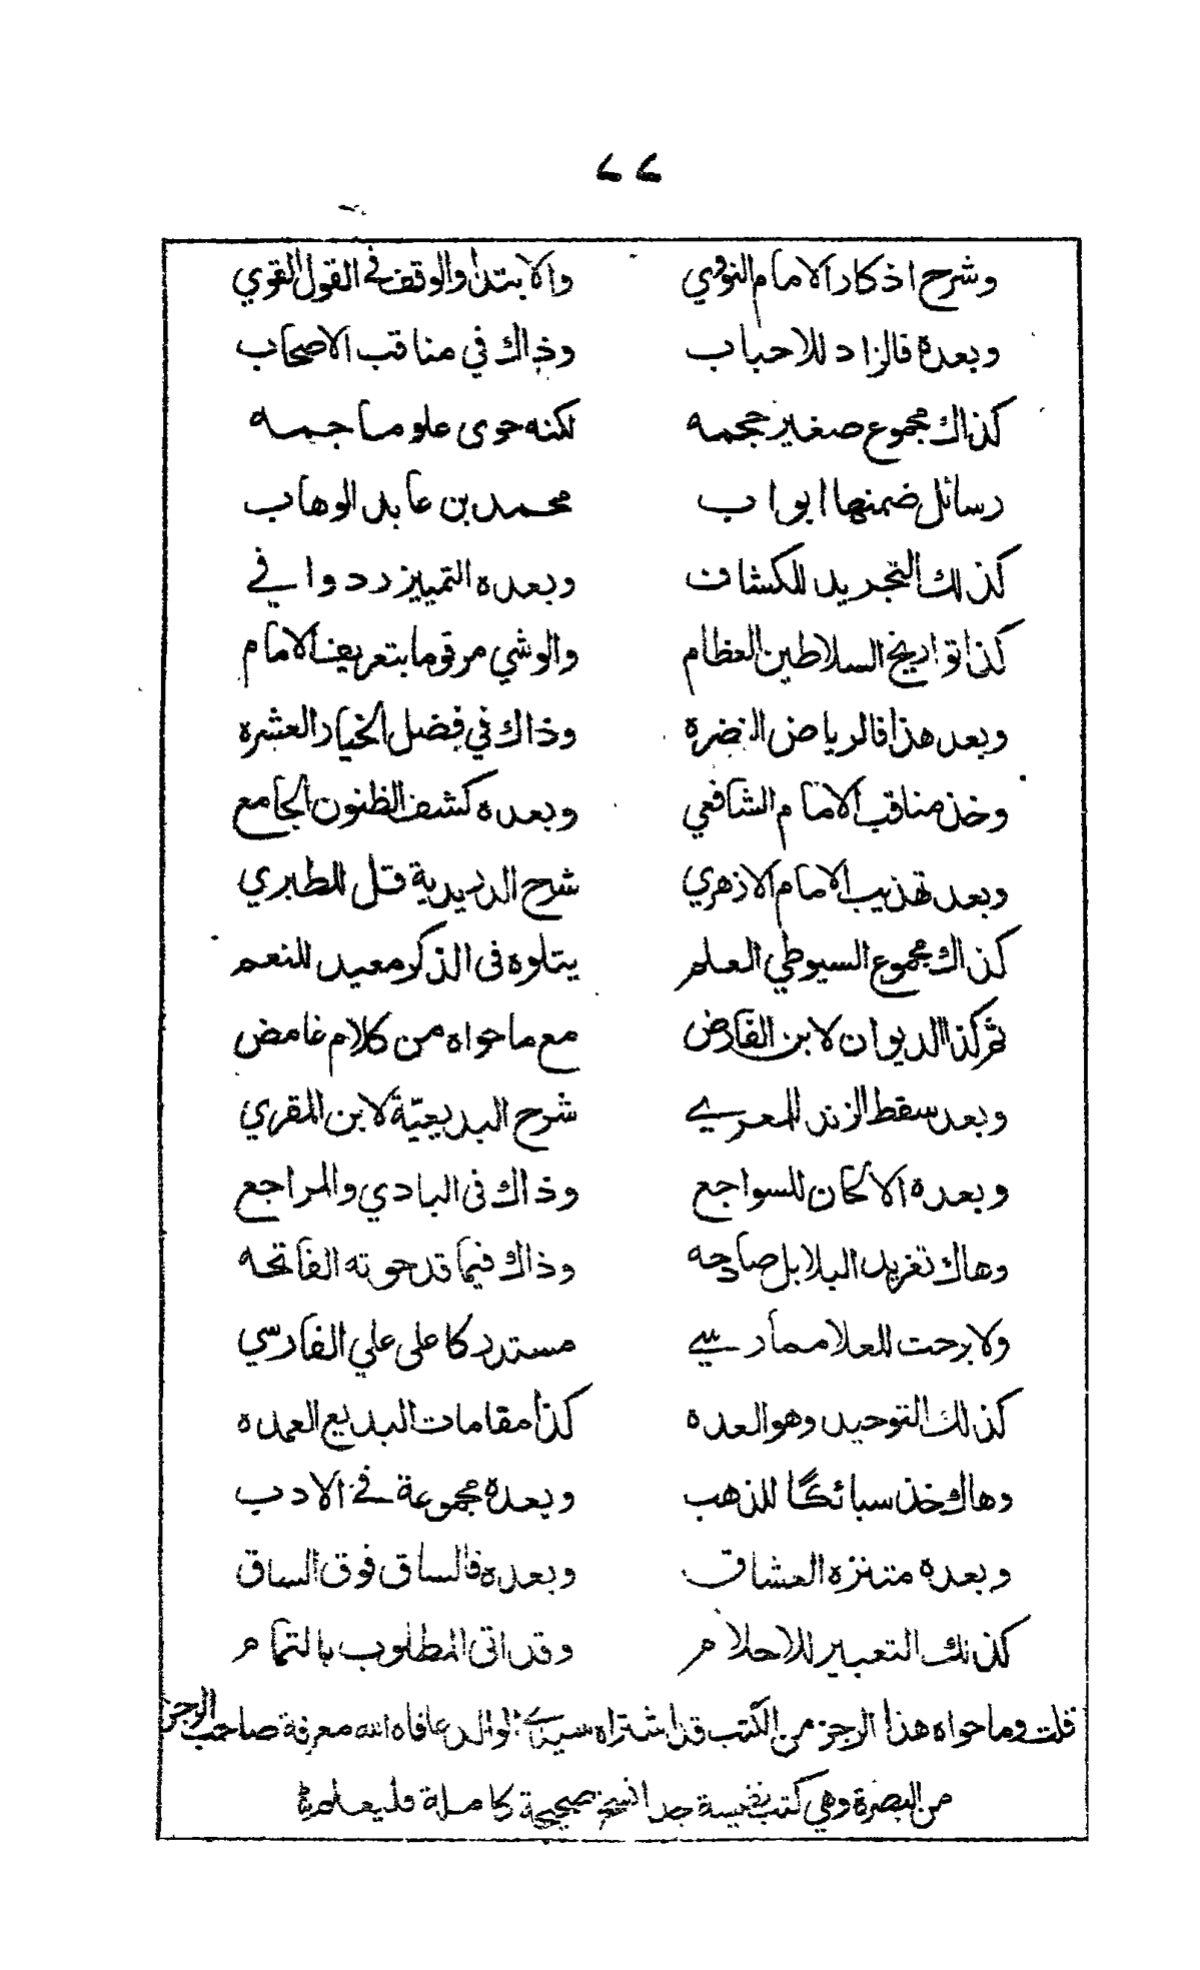 ٢٢
وشرح اذكار الامام النووي والابتدا والوقف في القول القوي
وبعده فالزاد للاحباب وذاك في مناقب الاصحاب
كذاك مجموع صغير حجمه لكنه حوى علوما جمه
رسائل ضمنها ابواب محمد بن عابد الوهاب
كذلك التجريد للكشاف وبعده التمييز رد وافي
كذا تواريخ السلاطين العظام والوشي مرقوما بتعريف الامام
وبعد هذا فالرياض النضرة وذاك في فضل الخيار العشره
وخذ مناقب الامام الشافعي وبعده كشف الظنون الجامع
وبعد تهذيب الامام الازهري شرح الدريدية قل للطبري
كذاك مجموع السيوطي العلم يتلوه فى الذكر معيد للنعم
ثم كذا الديوان لابن الفارض مع ما حواه من كلام غامض
وبعد سقط الزند للمعري شرح البديعيّة لابن المقري
وبعده الالحان للسواجع وذاك فى البادي والمراجع
وهاك تغريد البلابل صادحه وذاك فيما قد حوته الفاتحه
ولا برحت للعلا ممارسي مستدركا على علي الفارسي
كذلك التوحيد وهو العده كذا مقامات البديع العمده
وهاك خذ سبائكا للذهب وبعده مجموعة في الادب
وبعده متنزه العشاق وبعده فالساق فوق الساق
كذلك التعبير للاحلام وقد اتى المطلوب بالتمام
قلت وما حواه هذا الرجز من الكتب قد اشتراه سيدي الوالد عافاه الله معرفة صاحب الرجز
من البصرة وهي كتب نفيسة جدا نسخ صحيحة كاملة فليعلم